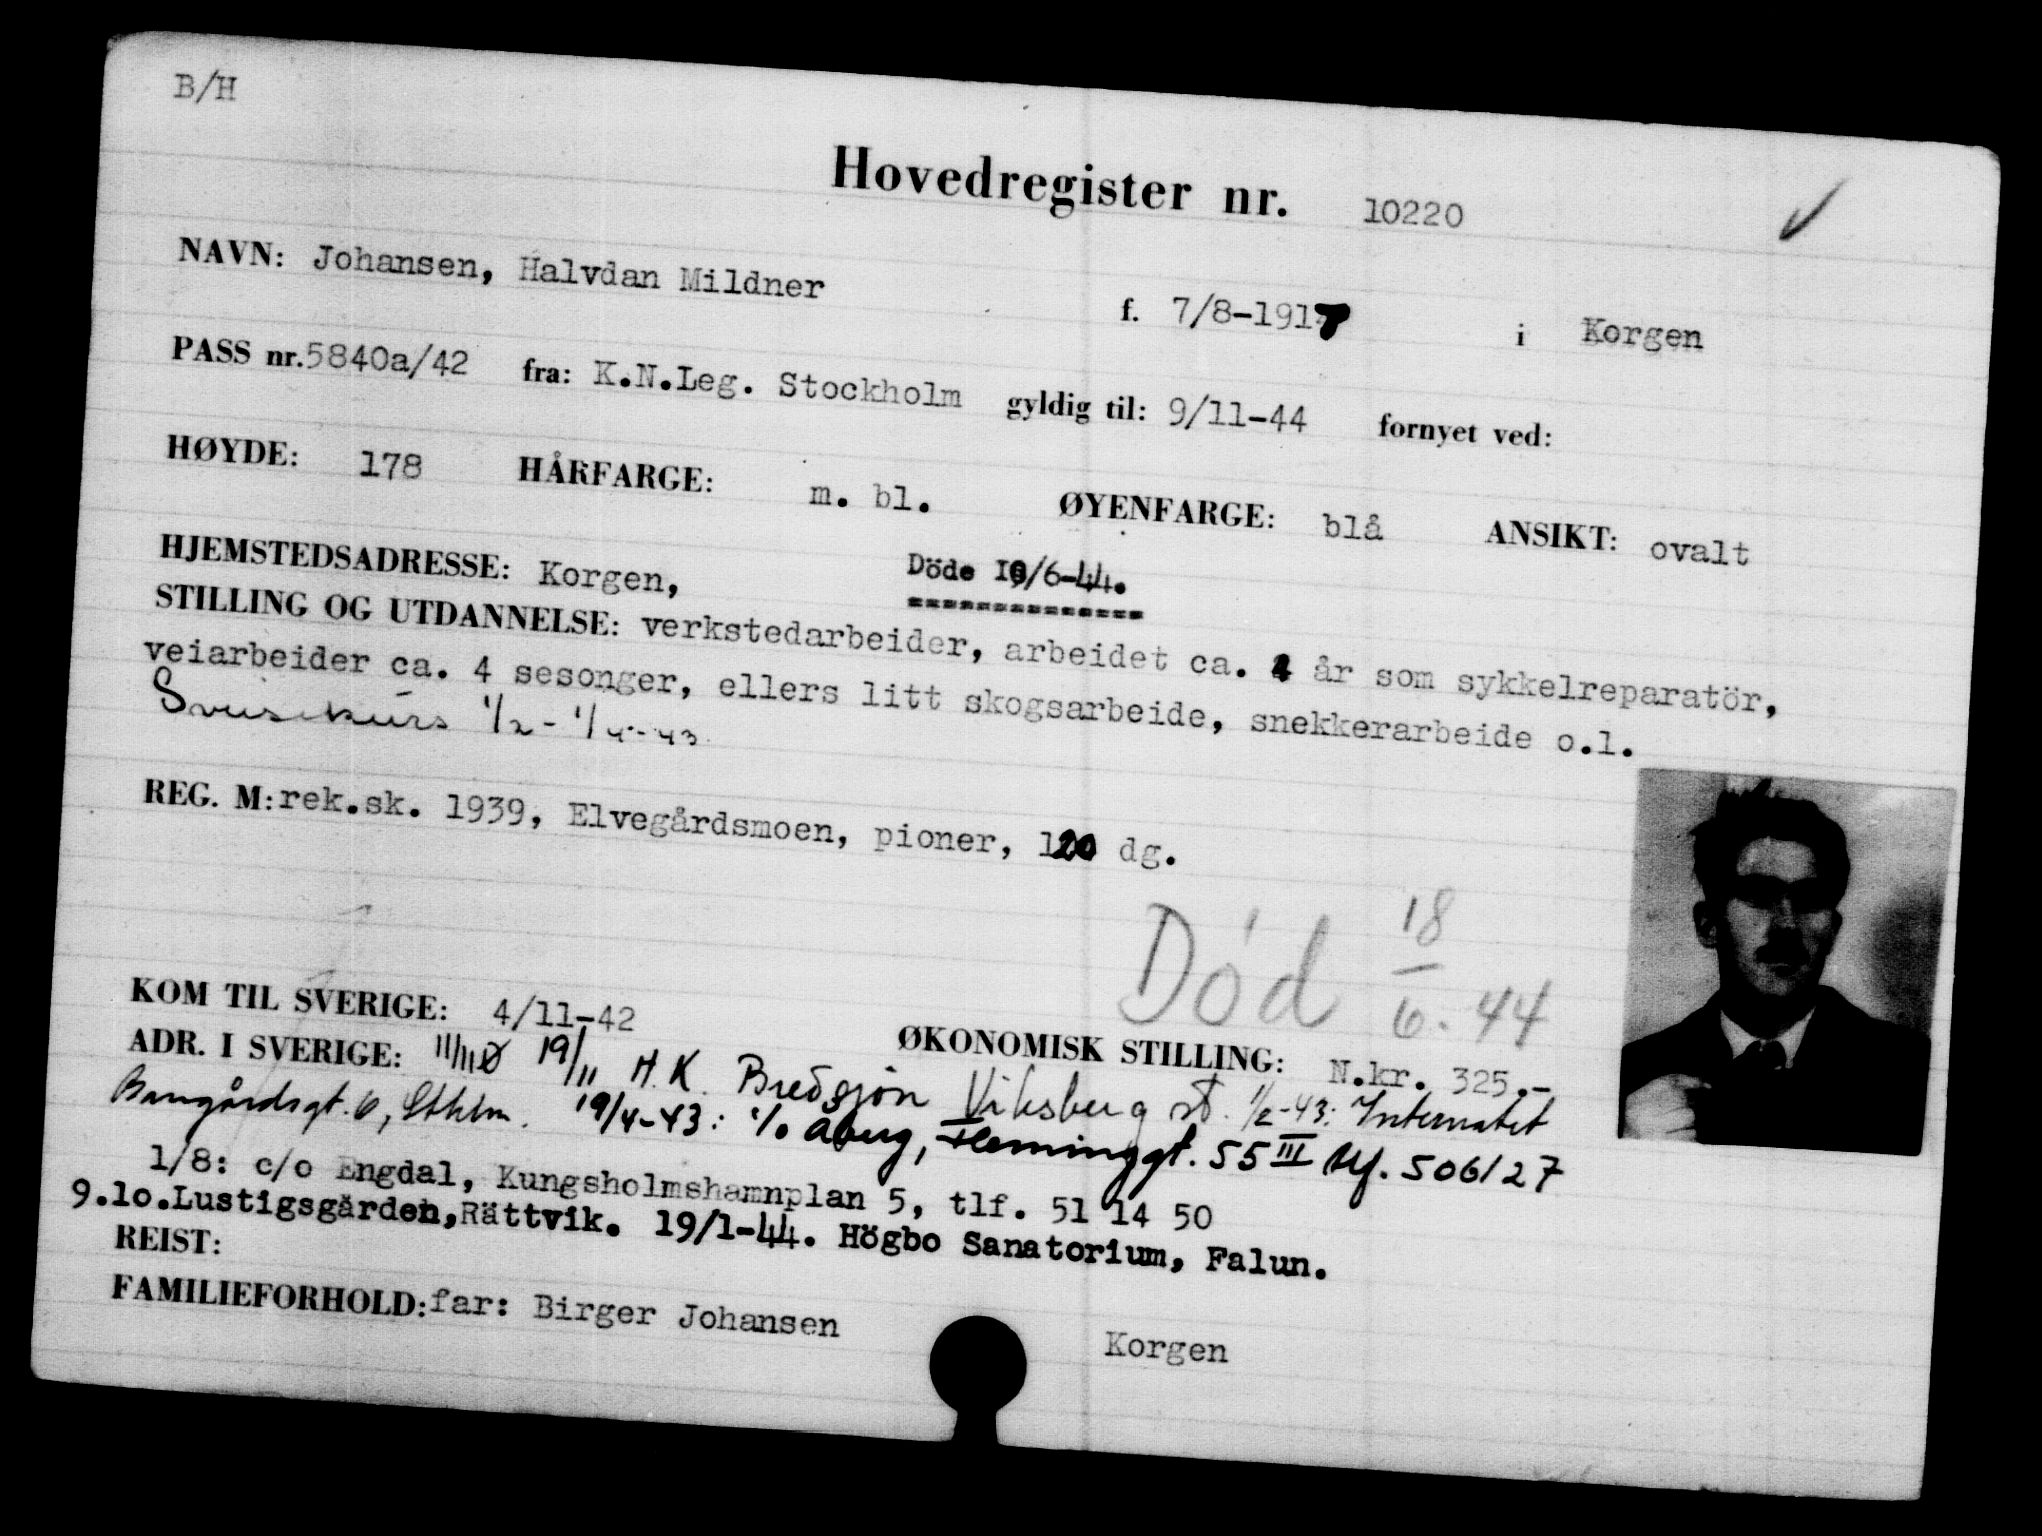 B/H
Hovedregister nr. 10220
NAVN: Johansen, Halvdan Mildner f. 7/8-1917 i Korgen
PASS nr. 5840a/42 fra: K.N.Leg. Stockholm gyldig til: 9/11-44 fornyet ved:
HØYDE: 178 HÅRFARGE: m. bl. ØYENFARGE: blå ANSIKT: ovalt
HJEMSTEDSADRESSE: Korgen, Döde /6-44.
STILLING OG UTDANNELSE: verkstedarbeider, arbeidet ca. 4 år som sykkelreparatör,
veiarbeider ca. 4 sesonger, ellers litt skogsarbeide, snekkerarbeide o.l.
Sveisekurs 1/2 - 1/4 - 43
REG. M: rek.sk. 1939, Elvegårdsmoen, pioner, 120 dg.
Död 18/6. 44
KOM TIL SVERIGE: 4/11-42 ØKONOMISK STILLING: N.kr. 325.-
ADR. I SVERIGE: 19/11 H.K. Bredsjön Viksberg st. 1/2-43: Internatet
Bangårdsgt. 6, Sthlm. 19/4-43: c/o Åberg, Fleminggt. 55 III tlf. 506127
1/8: c/o Engdal, Kungsholmshamnplan 5, tlf. 51 14 50
9.10. Lustigsgården, Rättvik. 19/1-44. Högbo Sanatorium, Falun.
REIST:
FAMILIEFORHOLD: far: Birger Johansen Korgen